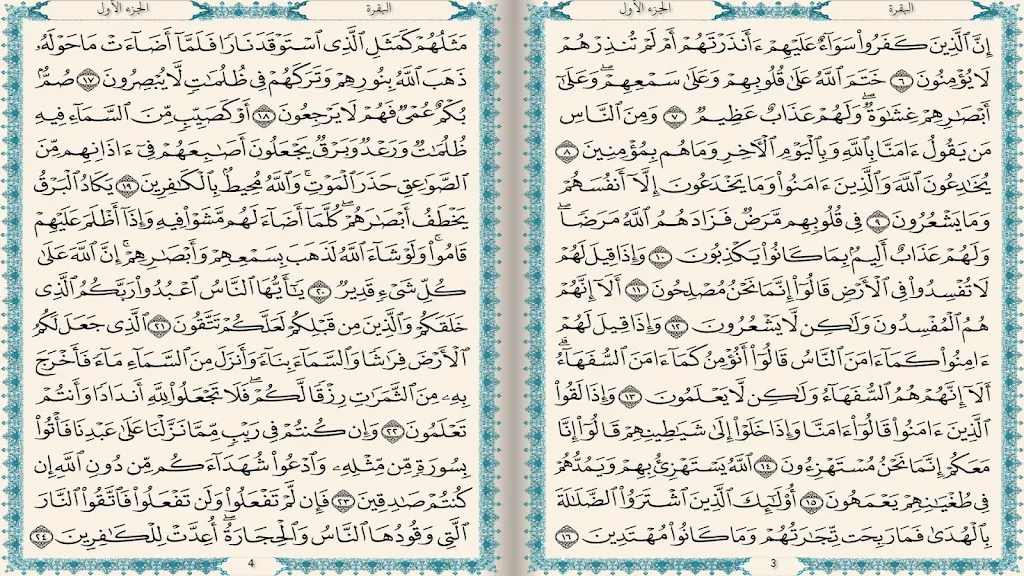 البقرة الجزء الأول
إِنَّ ٱلَّذِينَ كَفَرُوا۟ سَوَآءٌ عَلَيْهِمْ ءَأَنذَرْتَهُمْ أَمْ لَمْ تُنذِرْهُمْ
لَا يُؤْمِنُونَ ٦ خَتَمَ ٱللَّهُ عَلَىٰ قُلُوبِهِمْ وَعَلَىٰ سَمْعِهِمْ ۖ وَعَلَىٰٓ
أَبْصَٰرِهِمْ غِشَٰوَةٌ ۖ وَلَهُمْ عَذَابٌ عَظِيمٌ ٧ وَمِنَ ٱلنَّاسِ
مَن يَقُولُ ءَامَنَّا بِٱللَّهِ وَبِٱلْيَوْمِ ٱلْءَاخِرِ وَمَا هُم بِمُؤْمِنِينَ ٨
يُخَٰدِعُونَ ٱللَّهَ وَٱلَّذِينَ ءَامَنُوا۟ وَمَا يَخْدَعُونَ إِلَّآ أَنفُسَهُمْ
وَمَا يَشْعُرُونَ ٩ فِى قُلُوبِهِم مَّرَضٌ فَزَادَهُمُ ٱللَّهُ مَرَضًا ۖ
وَلَهُمْ عَذَابٌ أَلِيمٌۢ بِمَا كَانُوا۟ يَكْذِبُونَ ١٠ وَإِذَا قِيلَ لَهُمْ
لَا تُفْسِدُوا۟ فِى ٱلْأَرْضِ قَالُوٓا۟ إِنَّمَا نَحْنُ مُصْلِحُونَ ١١ أَلَآ إِنَّهُمْ
هُمُ ٱلْمُفْسِدُونَ وَلَٰكِن لَّا يَشْعُرُونَ ١٢ وَإِذَا قِيلَ لَهُمْ
ءَامِنُوا۟ كَمَآ ءَامَنَ ٱلنَّاسُ قَالُوٓا۟ أَنُؤْمِنُ كَمَآ ءَامَنَ ٱلسُّفَهَآءُ ۗ
أَلَآ إِنَّهُمْ هُمُ ٱلسُّفَهَآءُ وَلَٰكِن لَّا يَعْلَمُونَ ١٣ وَإِذَا لَقُوا۟
ٱلَّذِينَ ءَامَنُوا۟ قَالُوٓا۟ ءَامَنَّا وَإِذَا خَلَوْا۟ إِلَىٰ شَيَٰطِينِهِمْ قَالُوٓا۟ إِنَّا
مَعَكُمْ إِنَّمَا نَحْنُ مُسْتَهْزِءُونَ ١٤ ٱللَّهُ يَسْتَهْزِئُ بِهِمْ وَيَمُدُّهُمْ
فِى طُغْيَٰنِهِمْ يَعْمَهُونَ ١٥ أُو۟لَٰٓئِكَ ٱلَّذِينَ ٱشْتَرَوُا۟ ٱلضَّلَٰلَةَ
بِٱلْهُدَىٰ فَمَا رَبِحَت تِّجَٰرَتُهُمْ وَمَا كَانُوا۟ مُهْتَدِينَ ١٦
3
البقرة الجزء الأول
مَثَلُهُمْ كَمَثَلِ ٱلَّذِى ٱسْتَوْقَدَ نَارًا فَلَمَّآ أَضَآءَتْ مَا حَوْلَهُۥ
ذَهَبَ ٱللَّهُ بِنُورِهِمْ وَتَرَكَهُمْ فِى ظُلُمَٰتٍ لَّا يُبْصِرُونَ ١٧ صُمٌّۢ
بُكْمٌ عُمْىٌ فَهُمْ لَا يَرْجِعُونَ ١٨ أَوْ كَصَيِّبٍ مِّنَ ٱلسَّمَآءِ فِيهِ
ظُلُمَٰتٌ وَرَعْدٌ وَبَرْقٌ يَجْعَلُونَ أَصَٰبِعَهُمْ فِىٓ ءَاذَانِهِم مِّنَ
ٱلصَّوَٰعِقِ حَذَرَ ٱلْمَوْتِ ۚ وَٱللَّهُ مُحِيطٌۢ بِٱلْكَٰفِرِينَ ١٩ يَكَادُ ٱلْبَرْقُ
يَخْطَفُ أَبْصَٰرَهُمْ ۖ كُلَّمَآ أَضَآءَ لَهُم مَّشَوْا۟ فِيهِ وَإِذَآ أَظْلَمَ عَلَيْهِمْ
قَامُوا۟ ۚ وَلَوْ شَآءَ ٱللَّهُ لَذَهَبَ بِسَمْعِهِمْ وَأَبْصَٰرِهِمْ ۚ إِنَّ ٱللَّهَ عَلَىٰ
كُلِّ شَىْءٍ قَدِيرٌ ٢٠ يَٰٓأَيُّهَا ٱلنَّاسُ ٱعْبُدُوا۟ رَبَّكُمُ ٱلَّذِى
خَلَقَكُمْ وَٱلَّذِينَ مِن قَبْلِكُمْ لَعَلَّكُمْ تَتَّقُونَ ٢١ ٱلَّذِى جَعَلَ لَكُمُ
ٱلْأَرْضَ فِرَٰشًا وَٱلسَّمَآءَ بِنَآءً وَأَنزَلَ مِنَ ٱلسَّمَآءِ مَآءً فَأَخْرَجَ
بِهِۦ مِنَ ٱلثَّمَرَٰتِ رِزْقًا لَّكُمْ ۖ فَلَا تَجْعَلُوا۟ لِلَّهِ أَندَادًا وَأَنتُمْ
تَعْلَمُونَ ٢٢ وَإِن كُنتُمْ فِى رَيْبٍ مِّمَّا نَزَّلْنَا عَلَىٰ عَبْدِنَا فَأْتُوا۟
بِسُورَةٍ مِّن مِّثْلِهِۦ وَٱدْعُوا۟ شُهَدَآءَكُم مِّن دُونِ ٱللَّهِ إِن
كُنتُمْ صَٰدِقِينَ ٢٣ فَإِن لَّمْ تَفْعَلُوا۟ وَلَن تَفْعَلُوا۟ فَٱتَّقُوا۟ ٱلنَّارَ
ٱلَّتِى وَقُودُهَا ٱلنَّاسُ وَٱلْحِجَارَةُ ۖ أُعِدَّتْ لِلْكَٰفِرِينَ ٢٤
4